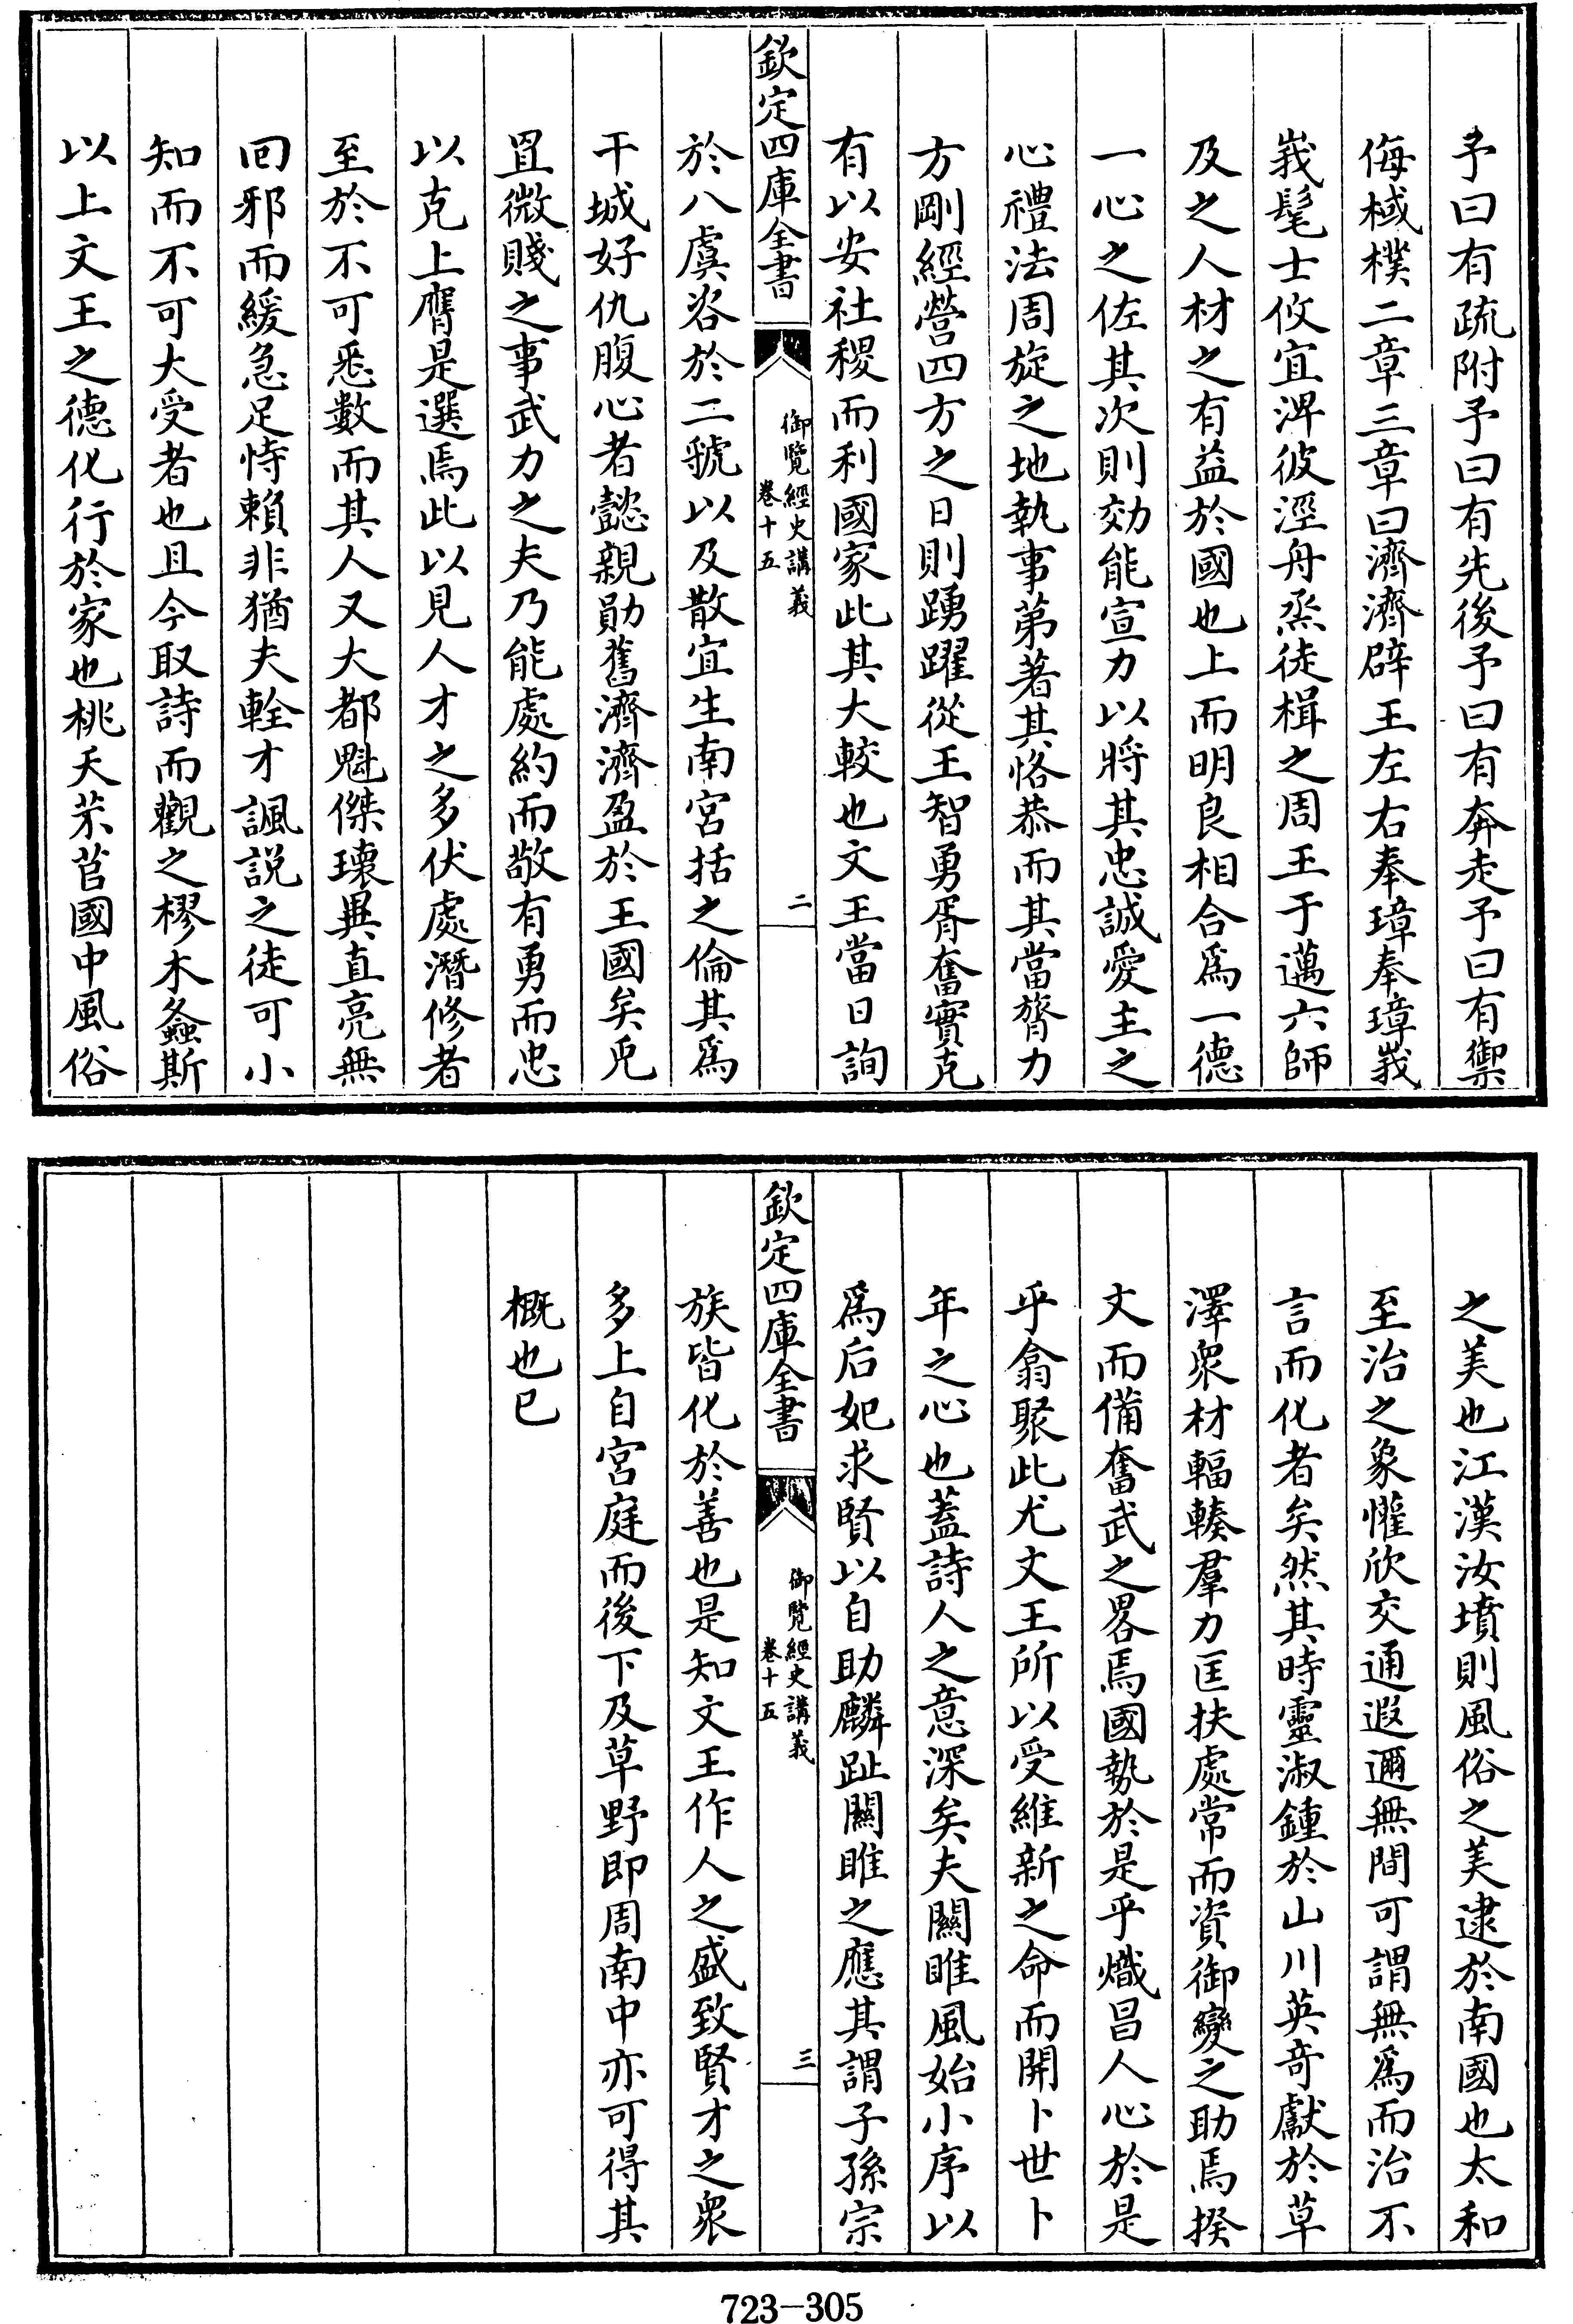 予曰有疏附予曰有先後予曰有奔走予曰有禦
侮棫樸二章三章曰濟濟辟王左右奉璋奉璋峩
峩髦士攸宜淠彼涇舟烝徒楫之周王于邁六師
及之人材之有益於國也上而明良相合爲一德
一心之佐其次則効能宣力以將其忠誠愛主之
心禮法周旋之地執事苐著其恪恭而其當膂力
方剛經營四方之日則踴躍從王智勇胥奮實克
有以安社稷而利國家此其大較也文王當日詢
欽定四庫全書
御覽經史講義
卷十五
二
於八虞咨於二虢以及散宜生南宮括之倫其爲
干城好仇腹心者懿親勛舊濟濟盈於王國矣兎
罝微賤之事武力之夫乃能處約而敬有勇而忠
以克上膺是選焉此以見人才之多伏處潛修者
至於不可悉數而其人又大都魁傑瓌異直亮無
回邪而緩急足恃賴非猶夫輇才諷說之徒可小
知而不可大受者也且今取詩而觀之樛木螽斯
以上文王之德化行於家也桃夭芣苢國中風俗
之美也江漢汝墳則風俗之美逮於南國也太和
至治之象懽欣交通遐邇無間可謂無爲而治不
言而化者矣然其時靈淑鍾於山川英奇獻於草
澤衆材輻輳羣力匡扶處常而資御變之助焉揆
文而備奮武之畧焉國埶於是乎熾昌人心於是
乎翕聚此尤文王所以受維新之命而開卜世卜
年之心也蓋詩人之意深矣夫關雎風始小序以
爲后妃求賢以自助麟趾關雎之應其謂子孫宗
欽定四庫全書
御覽經史講義
卷十五
三
族皆化於善也是知文王作人之盛致賢才之衆
多上自宮庭而後下及草野即周南中亦可得其
概也已
723-305